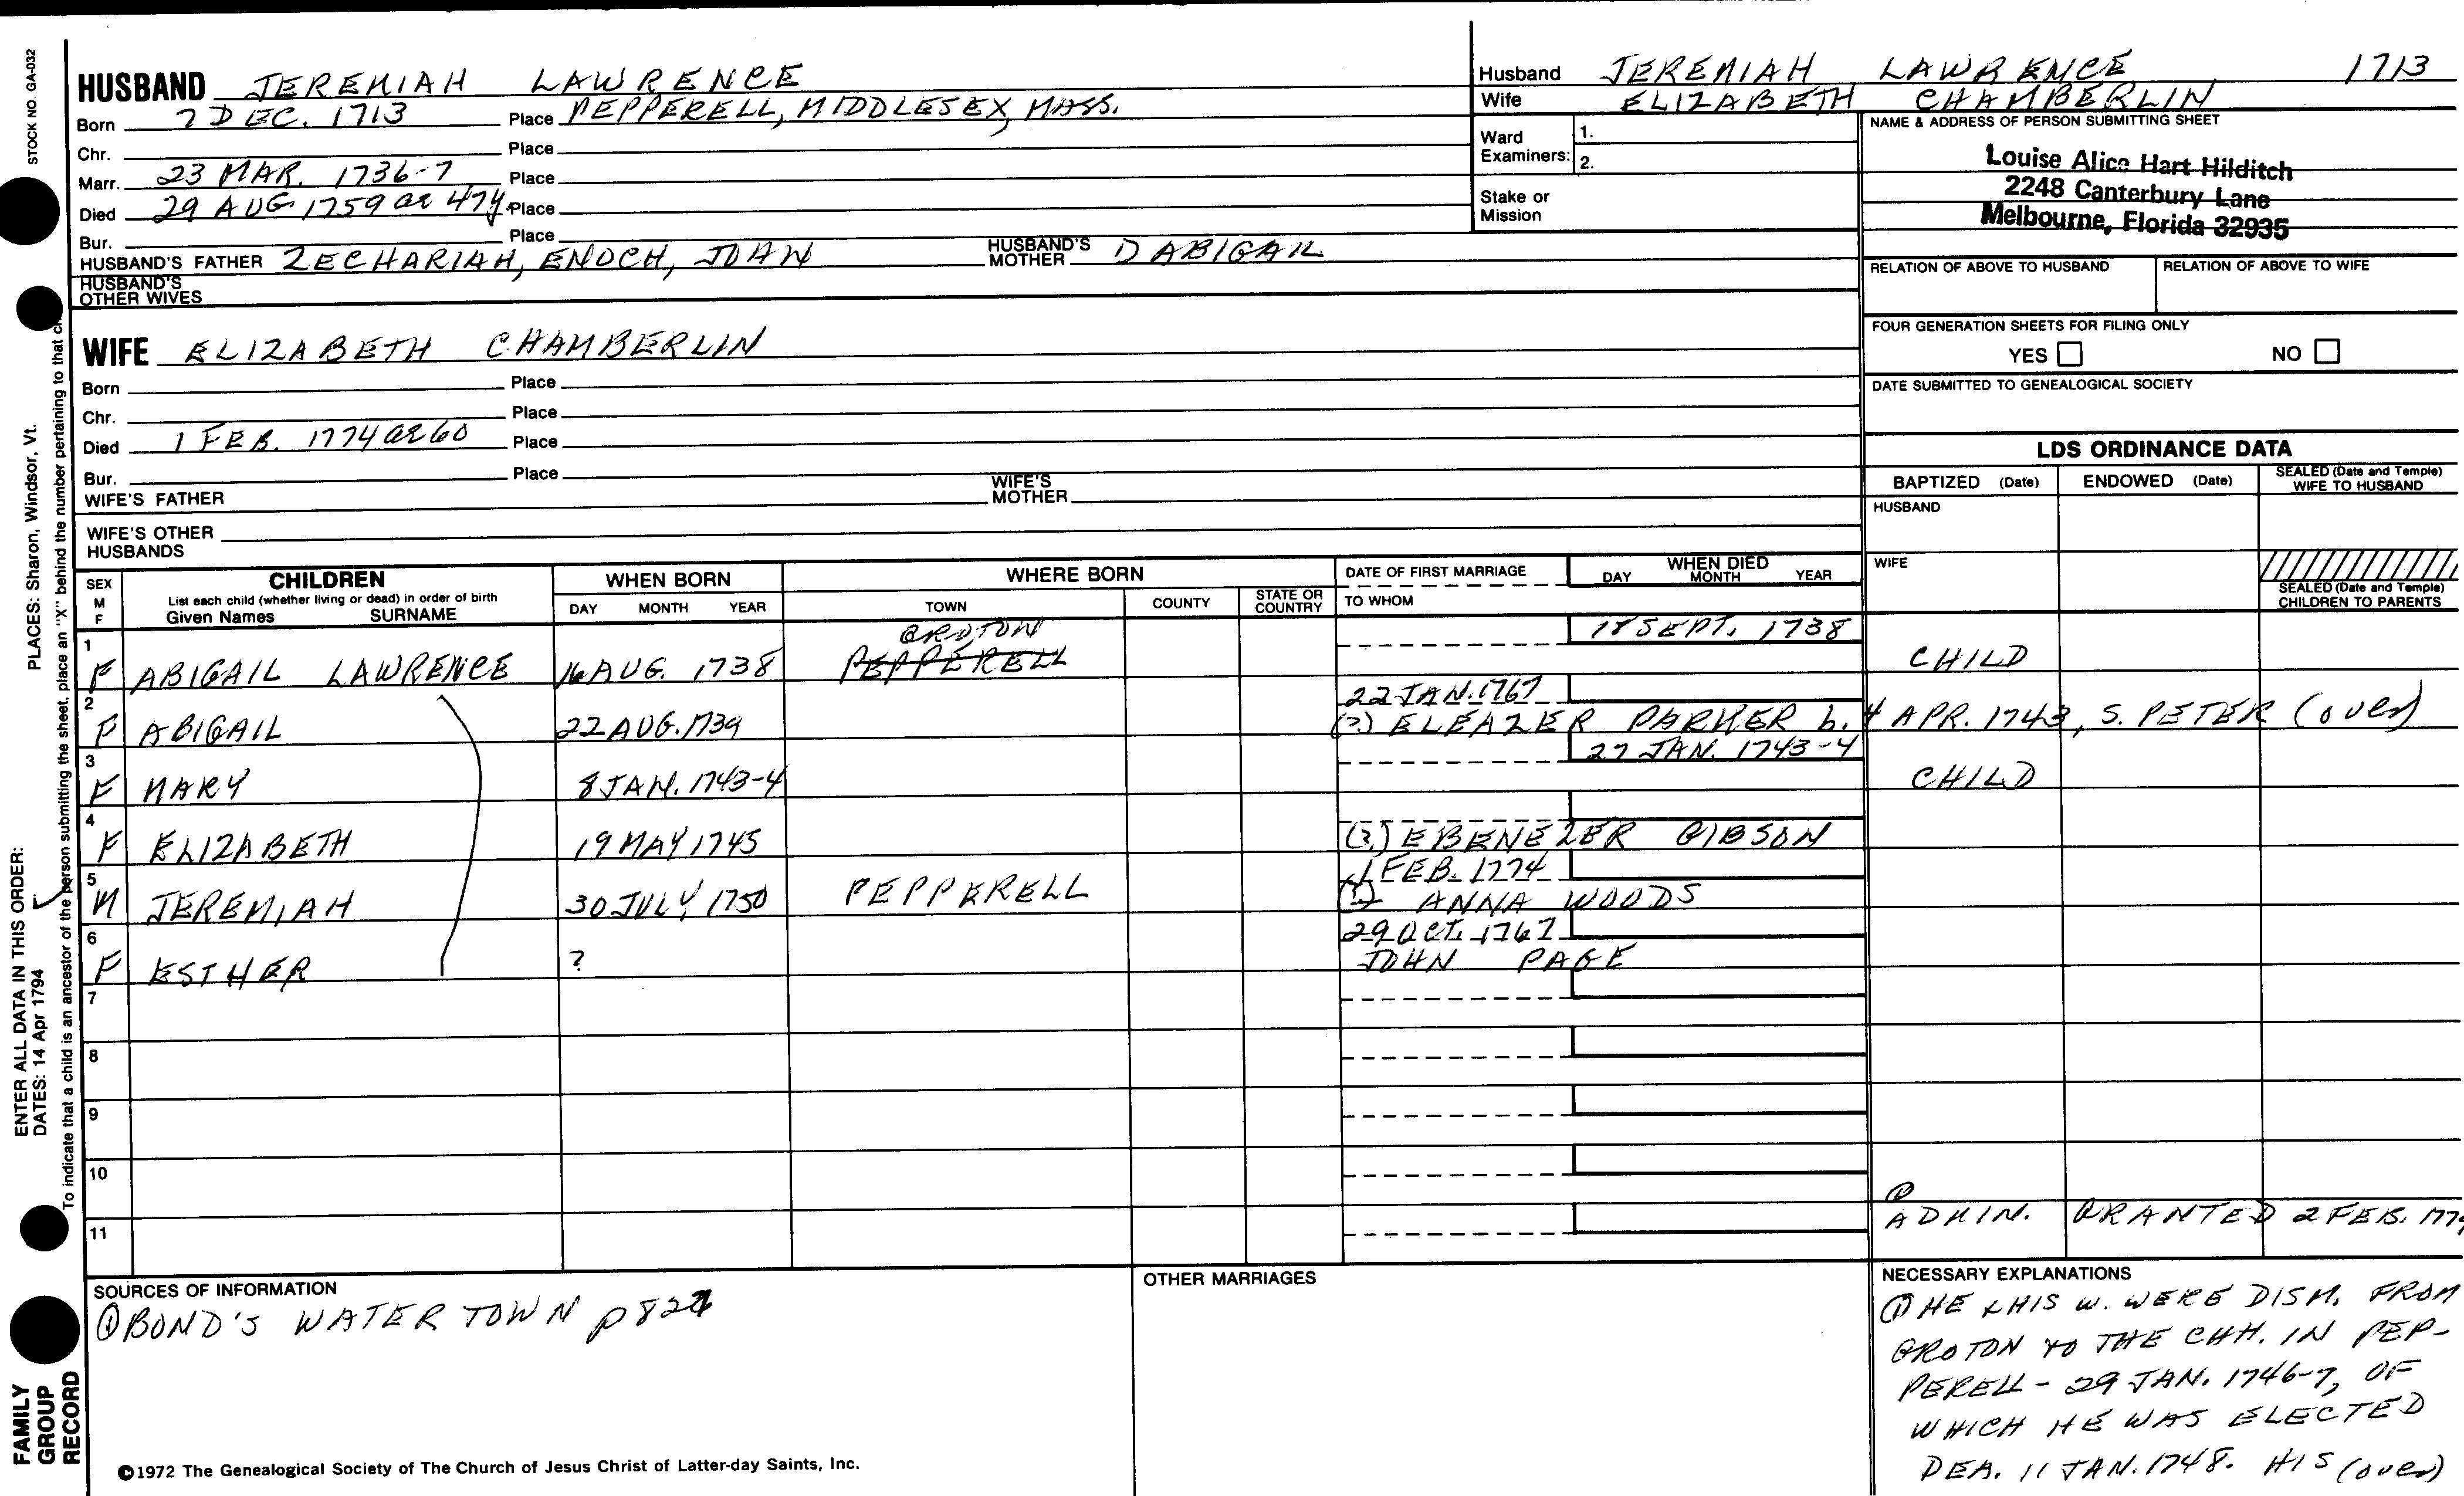 STOCK NO. GA-032
HUSBAND JEREMIAH LAWRENCE
Born 7 DEC. 1713 Place PEPPERELL, MIDDLESEX, MASS.
Chr. Place
Marr. 23 MAR. 1736-7 Place
Died 29 AUG 1759 ae 47y. Place
Bur. Place
HUSBAND'S FATHER ZECHARIAH, ENOCH, JOHN HUSBAND'S MOTHER D ABIGAIL
HUSBAND'S OTHER WIVES
WIFE ELIZABETH CHAMBERLIN
Born Place
Chr. Place
Died 1 FEB. 1774 ae 60 Place
Bur. Place
WIFE'S FATHER WIFE'S MOTHER
WIFE'S OTHER HUSBANDS
Husband JEREMIAH LAWRENCE 1713
Wife ELIZABETH CHAMBERLIN
Ward Examiners: 1.
2.
Stake or Mission
NAME & ADDRESS OF PERSON SUBMITTING SHEET
Louise Alice Hart Hilditch
2248 Canterbury Lane
Melbourne, Florida 32935
RELATION OF ABOVE TO HUSBAND RELATION OF ABOVE TO WIFE
FOUR GENERATION SHEETS FOR FILING ONLY
YES NO
DATE SUBMITTED TO GENEALOGICAL SOCIETY
LDS ORDINANCE DATA
BAPTIZED (Date) ENDOWED (Date) SEALED (Date and Temple) WIFE TO HUSBAND
HUSBAND
WIFE
SEALED (Date and Temple) CHILDREN TO PARENTS
SEX M F CHILDREN WHEN BORN WHERE BORN DATE OF FIRST MARRIAGE WHEN DIED
List each child (whether living or dead) in order of birth
Given Names SURNAME DAY MONTH YEAR TOWN COUNTY STATE OR COUNTRY TO WHOM DAY MONTH YEAR
GROTON 18 SEPT. 1738
1 F ABIGAIL LAWRENCE 16 AUG. 1738 PEPPERELL CHILD
22 JAN. 1767
2 F ABIGAIL 22 AUG. 1739 (2.) ELEAZER PARKER b. 4 APR. 1743, S. PETER (over)
27 JAN. 1743-4
3 F MARY 8 JAN. 1743-4 CHILD
4 F ELIZABETH 19 MAY 1745 (3.) EBENEZER GIBSON
1 FEB. 1774
5 M JEREMIAH 30 JULY 1750 PEPPERELL ANNA WOODS
29 OCT. 1767
6 F ESTHER ? JOHN PAGE
7
8
9
10
11
ADMIN. GRANTED 2 FEB.
SOURCES OF INFORMATION
① BOND'S WATERTOWN
OTHER MARRIAGES
NECESSARY EXPLANATIONS
① HE & HIS W. WERE DISM. FROM
GROTON TO THE CHH. IN PEP-
PERELL - 29 JAN. 1746-7, OF
WHICH HE WAS ELECTED
DEA. 11 JAN. 1748. HIS (over)
©1972 The Genealogical Society of The Church of Jesus Christ of Latter-day Saints, Inc.
FAMILY GROUP RECORD
ENTER ALL DATA IN THIS ORDER:
DATES: 14 Apr 1794
PLACES: Sharon, Windsor, Vt.
To indicate that a child is an ancestor of the person submitting the sheet, place an "X" behind the number pertaining to that